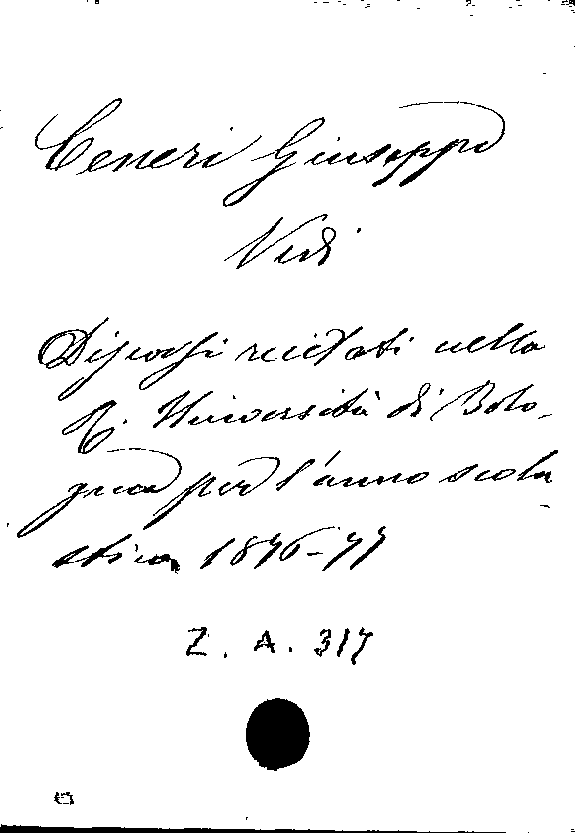 Ceneri Giuseppe
Vedi
Discorsi recitati nella
R. Università di Bolo-
gna per l'anno scola-
stico 1876-77
Z. A. 317